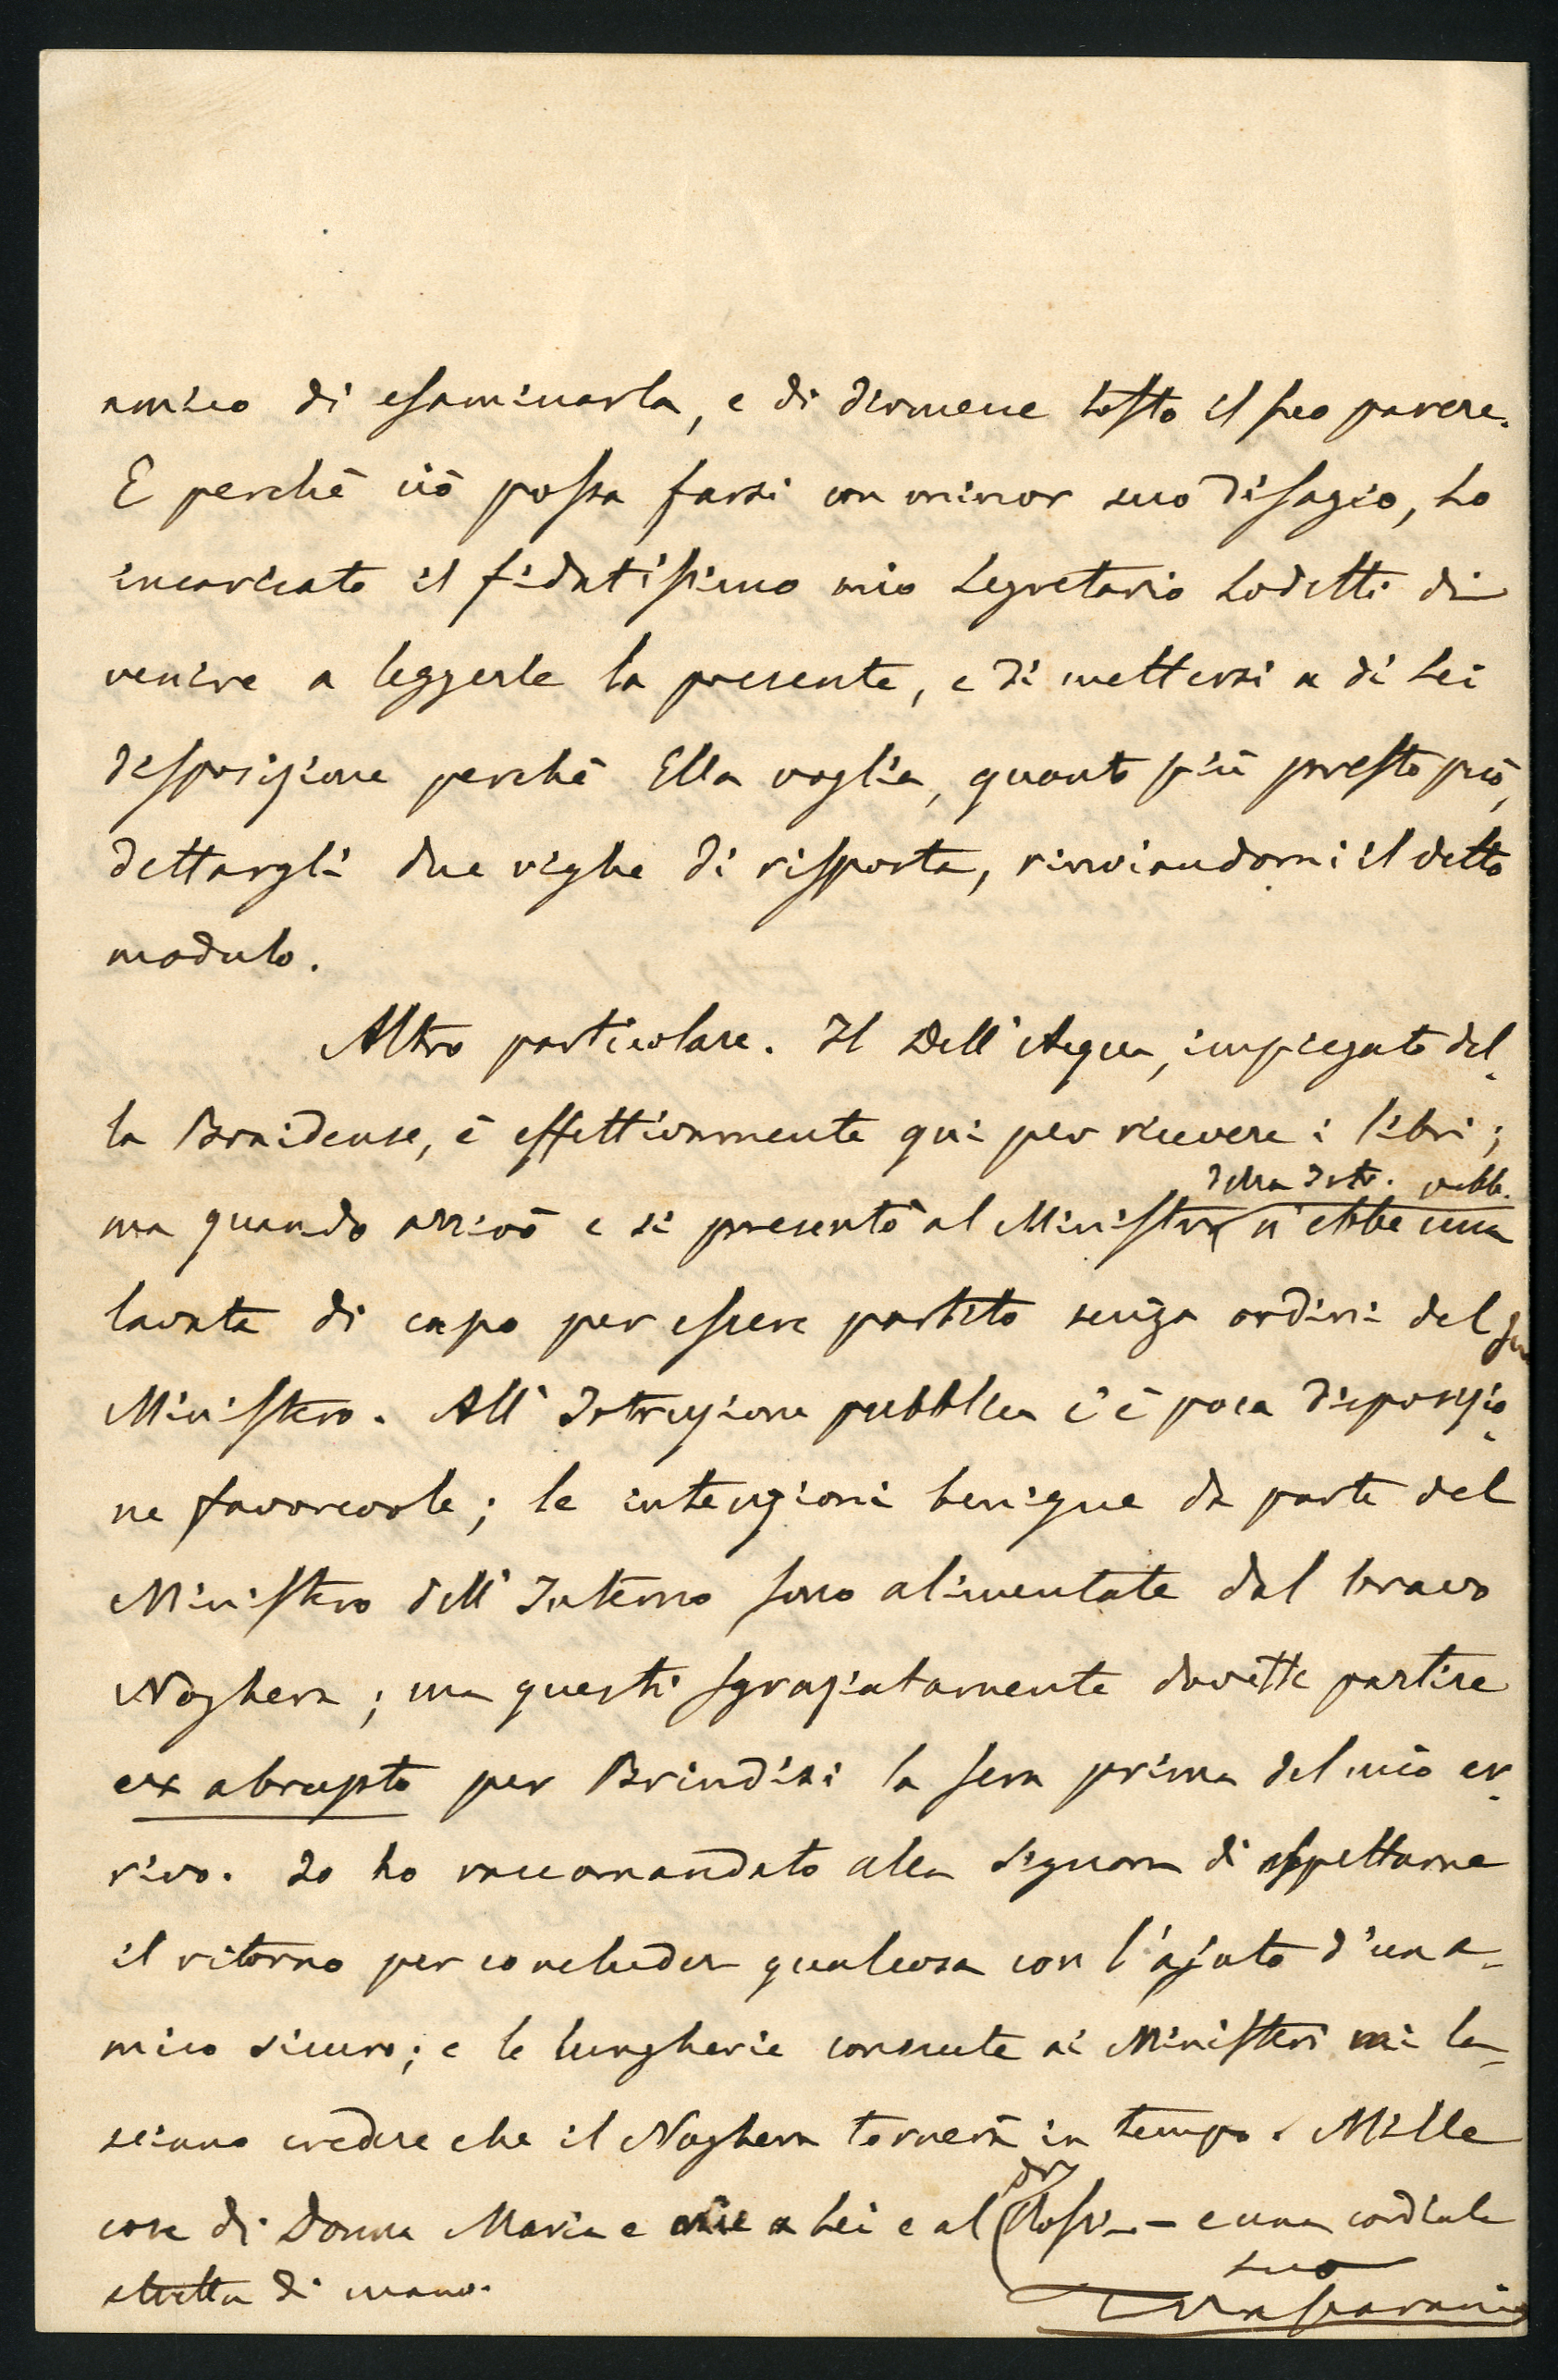 amico di esaminarla, e di dirmene tosto il suo parere.
E perchè ciò possa farsi con minor suo disagio, ho
incaricato il fidatissimo mio Segretario Lodetti di
venire a leggerle la presente, e di mettersi a di Lei
disposizione perchè Ella voglia, quanto più presto può,
dettargli due righe di risposta, rinviandomi il detto
modulo.
Altro particolare. Il Dell'Acqua, impiegato del-
la Braidense, è effettivamente qui per ricevere i libri;
della Istr. pubb.
ma quando arrivò e si presentò al Ministro n'ebbe una
lavata di capo per essere partito senza ordini del suo
Ministero. All'Istruzione pubblica c'è poca disposizio-
ne favorevole; le intenzioni benigne da parte del
Ministero dell'Interno sono alimentate dal bravo
Noghera; ma questi sgraziatamente dovette partire
ex abrupto per Brindisi la sera prima del mio ar-
rivo. Io ho raccomandato alla Signora di aspettarne
il ritorno per concluder qualcosa con l'ajuto d'un a-
mico sicuro; e le lungherie consuete ai Ministeri mi la-
sciano credere che il Noghera tornerà in tempo. Mille
cose di Donna Maria e mie a Lei e al Dr Rossi — e una cordiale
stretta di mano.
suo